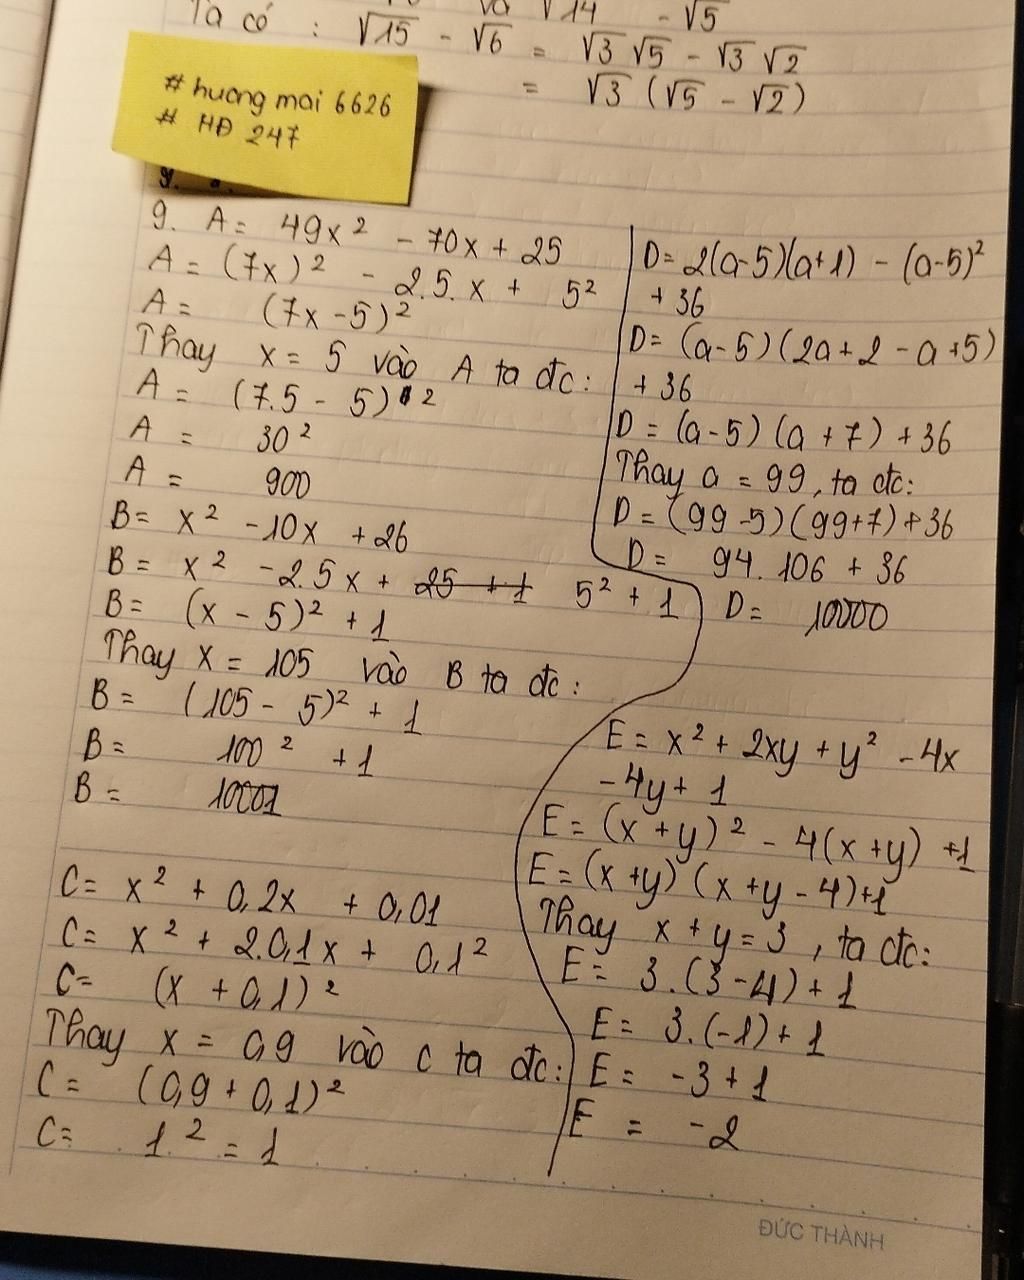 √14 - √5
Ta có : √15 - √6 = √3 √5 - √3 √2
= √3 (√5 - √2)
# huong mai 6626
# HĐ 247
9. A = 49x² - 70x + 25
A = (7x)² - 2.5.x + 5²
A = (7x - 5)²
Thay x = 5 vào A ta đc:
A = (7.5 - 5)²
A = 30²
A = 900
B = x² - 10x + 26
B = x² - 2.5x + 25 + 1 5² + 1
B = (x - 5)² + 1
Thay x = 105 vào B ta đc:
B = (105 - 5)² + 1
B = 100² + 1
B = 10001
C = x² + 0,2x + 0,01
C = x² + 2.0,1x + 0,1²
C = (x + 0,1)²
Thay x = 0,9 vào C ta đc:
C = (0,9 + 0,1)²
C = 1² = 1
D = 2(a-5)(a+1) - (a-5)²
+ 36
D = (a-5)(2a+2-a+5)
+ 36
D = (a-5)(a+7) + 36
Thay a = 99, ta đc:
D = (99-5)(99+7)+36
D = 94.106 + 36
D = 10000
E = x² + 2xy + y² - 4x
- 4y + 1
E = (x+y)² - 4(x+y) +1
E = (x+y)(x+y-4)+1
Thay x + y = 3, ta đc:
E = 3.(3-4)+1
E = 3.(-1)+1
E = -3+1
E = -2
ĐỨC THÀNH